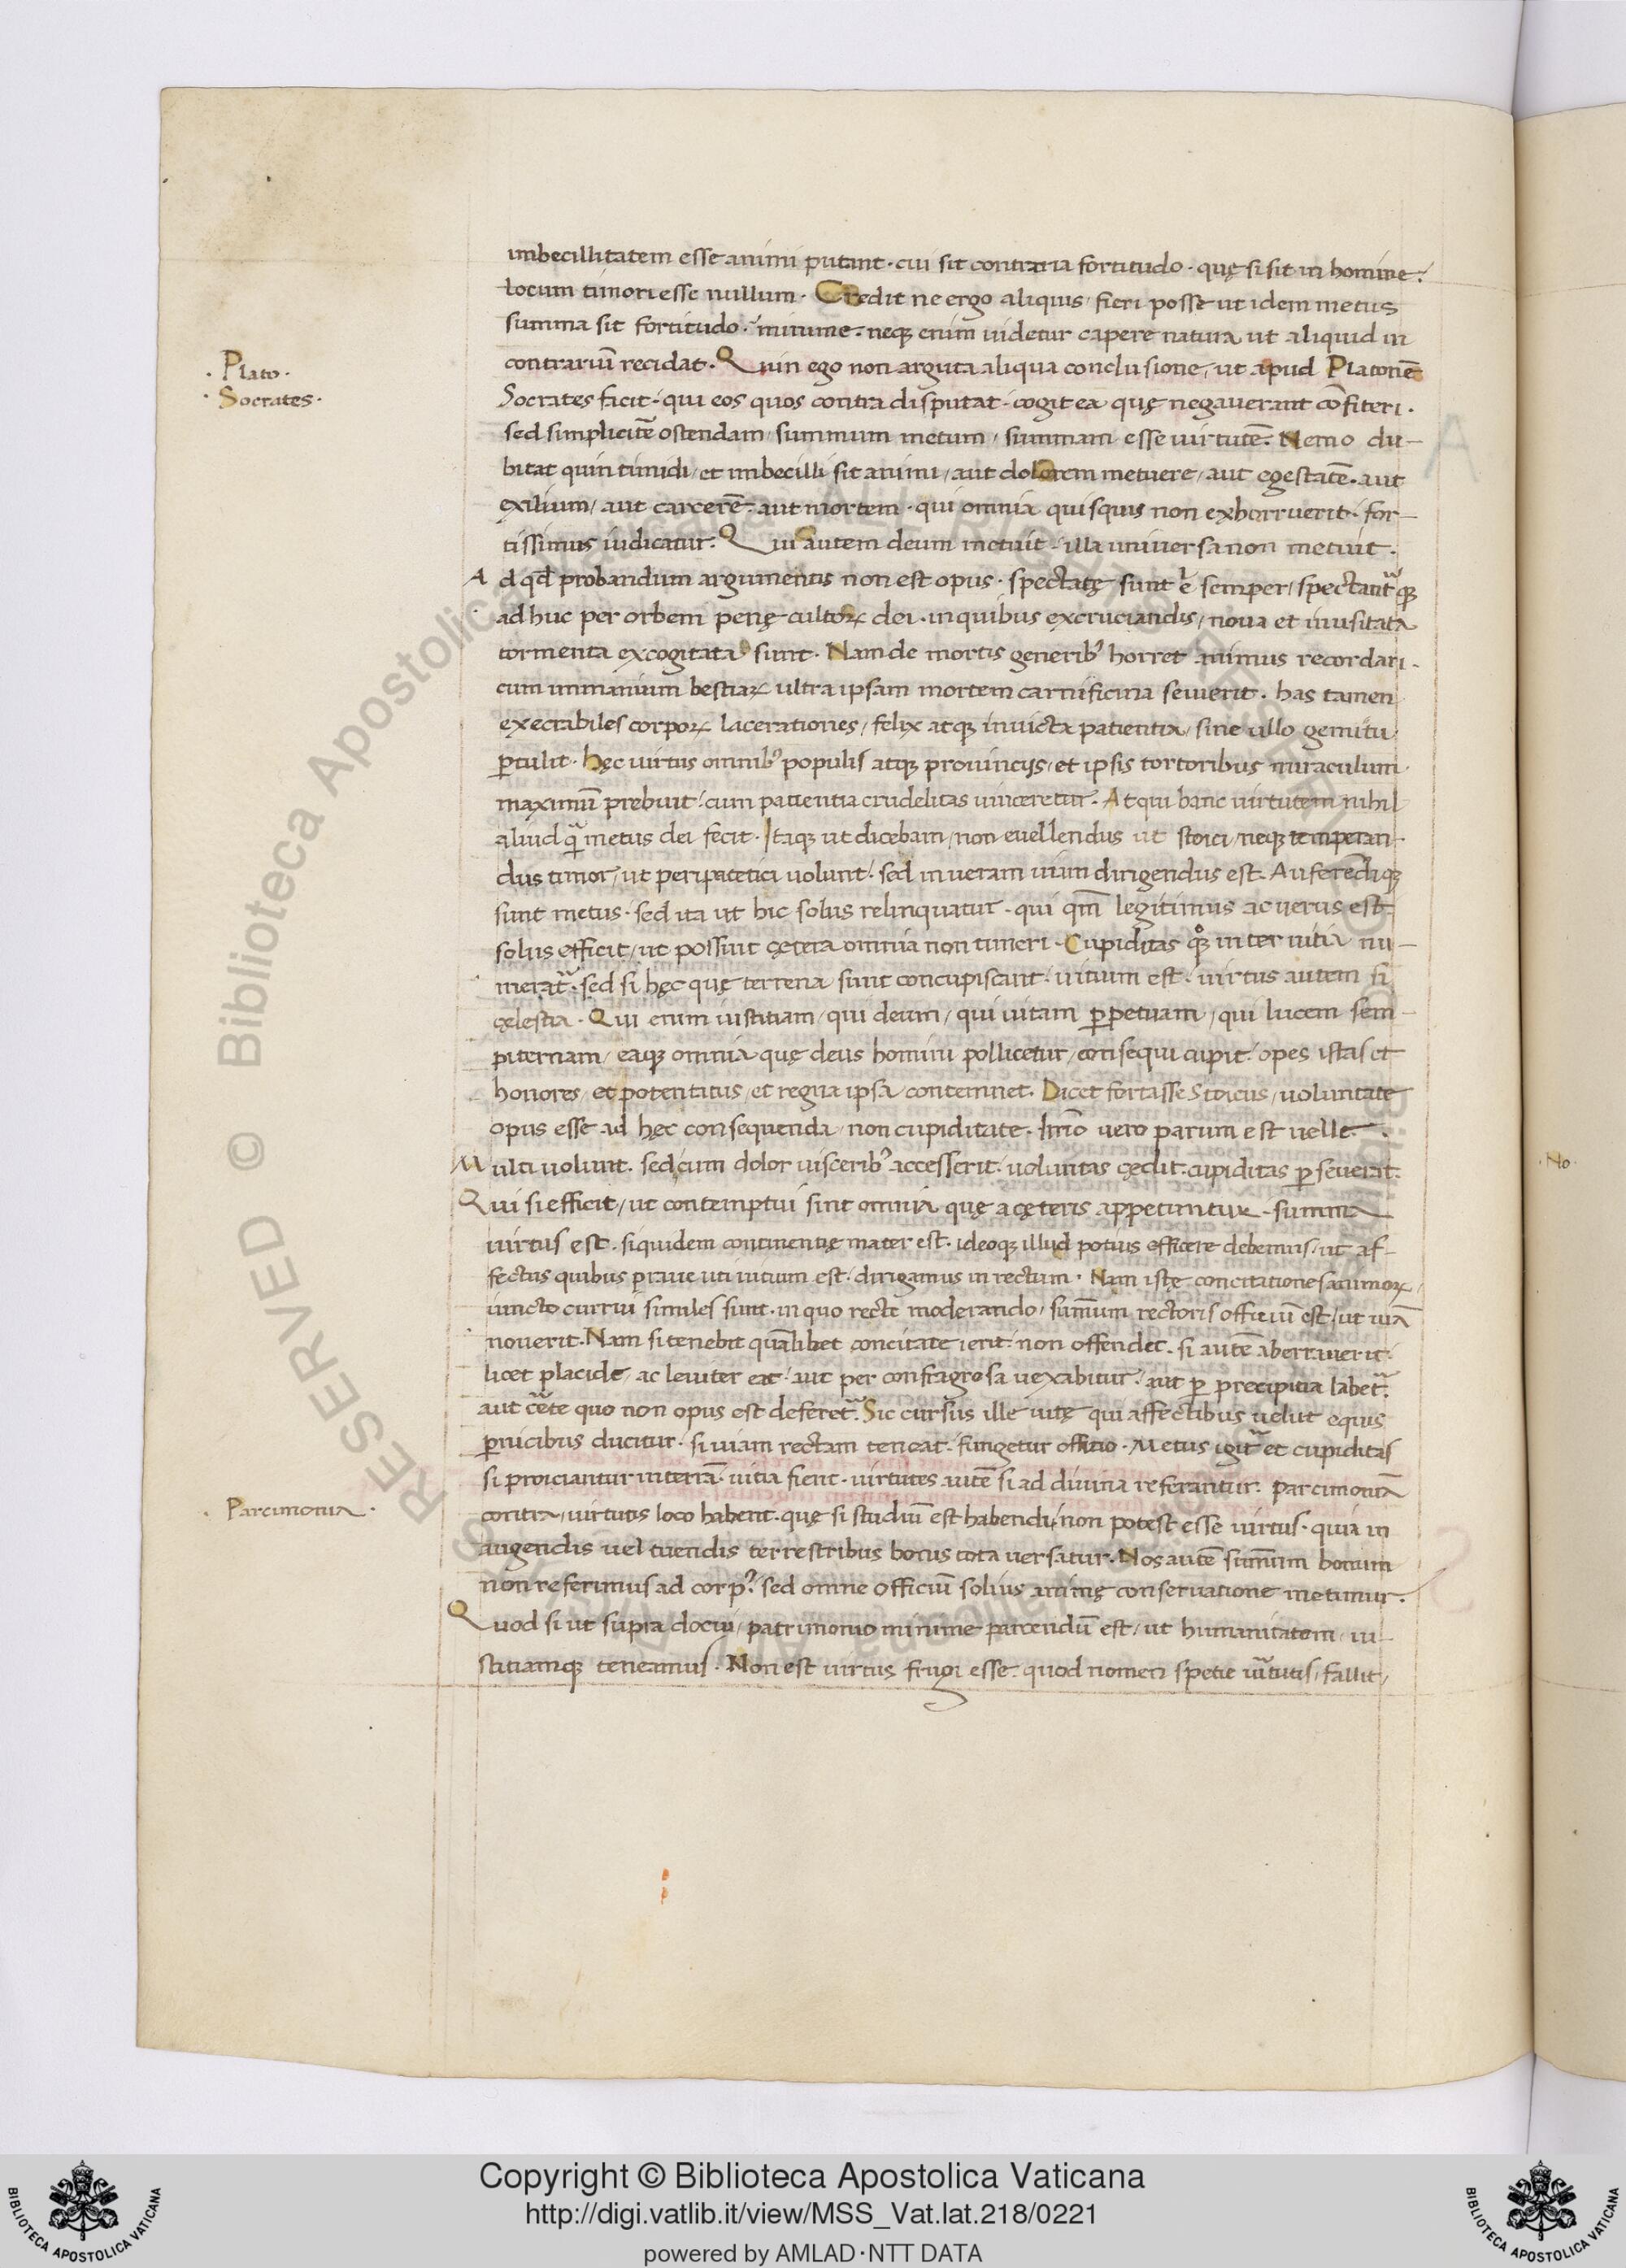 imbecillitatem esse animi putant · cui sit contraria fortitudo · quę si sit in homine ·
locum timori esse nullum · Credit ne ergo aliquis / fieri posse ut idem metus
summa sit fortitudo · minime · neq; enim uidetur capere natura ut aliquid in
contrariū recidat · Quin ego non arguta aliqua conclusione / ut apud Platonē
· Plato ·
· Socrates ·
Socrates facit · qui eos quos contra disputat · cogit ea quę negauerant cōfiteri ·
sed simplicitē ostendam / summum metum / summam esse uirtutē · Nemo du-
bitat quin timidi / et imbecilli sit animi / aut dolorem metuere / aut egestatē · aut
exilium / aut carcerē · aut mortem · qui omnia quisquis non exhorruerit · for-
tissimus iudicatur · Qui autem deum metuit · illa uniuersa non metuit ·
Ad qd̄ probandum argumentis non est opus · spectatę sunt · semper / spectant᷑q;
ad huc per orbem penę cultoꝝ dei · in quibus excruciandis / noua et inusitata
tormenta excogitata sunt · Nam de mortis generibꝰ horret animus recordari ·
cum inmanium bestiaꝝ ultra ipsam mortem carnificina seuierit · has tamen
execrabiles corpoꝝ lacerationes / felix atq; inuicta patientia / sine ullo gemitu
ꝑtulit · hęc uirtus omnibꝰ populis atq; prouincijs / et ipsis tortoribus miraculum
maximū prebuit / cum patientia crudelitas uinceretur · Atqui hanc uirtutem nihil
aliud q̄ metus dei fecit · Itaq; ut dicebam / non euellendus ut stoici / neq; temperan-
dus timor / ut peripatetici uolunt · sed in ueram uiam dirigendus est · Auferēdiq;
sunt metus · sed ita ut hic solus relinquatur · qui qm̄ legitimus ac uerus est
solus efficit / ut possint çętera omnia non timeri · Cupiditas qͦ inter uitia nu-
merat᷑ · sed si hęc quę terrena sunt concupiscant · uitium est · uirtus autem si
çęlestia · Qui enim iustitiam / qui deum / qui uitam ꝑpetuam / qui lucem sem-
piternam / eaq; omnia quę deus homini pollicetur / consequi cupit · opes istas et
honores / et potentatus / et regna ipsa contemnet · Dicet fortasse Stoicus / uoluntate
opus esse ad hęc consequenda / non cupiditate · Immo uero parum est uelle ·
Multi uolunt · sed cum dolor uisceribꝰ accesserit · uoluntas çędit · cupiditas ꝑseuerat ·
· No ·
Qui si efficit / ut contemptui sint omnia quę a çęteris appetuntur · summa
uirtus est · siquidem continentię mater est · ideoq; illud potius efficere debemus / ut af-
fectus quibus praue uti uitium est · dirigamus in rectum · Nam istę concitationes animoꝝ /
iuncto currui similes sunt · in quo recte moderando / summum rectoris offitiū est / ut uiā
nouerit · Nam si tenebit quālibet concitate ierit · non offendet · si autē aberrauerit ·
licet placide / ac leniter eat · aut per confragosa uexabitur / aut ꝑ precipitia labet᷑ ·
aut c᷑te quo non opus est deferet᷑ · Sic cursus ille uitę qui affectibus uelut equis
ꝑnicibus ducitur · si uiam rectam teneat · fungetur offitio · Metus igit᷑ et cupiditas
si proiciantur in terrā · uitia fient · uirtutes autē si ad diuina referantur · parcimoniā
contra / uirtutis loco habent · quę si studiū est habendi / non potest esse uirtus · quia in
· Parcimonia ·
augendis uel tuendis terrestribus bonis tota uersatur · Nos autē summum bonum
non referimus ad corpꝰ · sed omne officiū solius animę conseruatione metimur ·
Quod si ut supra docui / patrimonio minime parcendū est / ut humanitatem / iu-
stitiamq; teneamus · Non est uirtus frugi esse · quod nomen spetie uir᷑tutis / fallit /
Copyright © Biblioteca Apostolica Vaticana
http://digi.vatlib.it/view/MSS_Vat.lat.218/0221
powered by AMLAD·NTT DATA